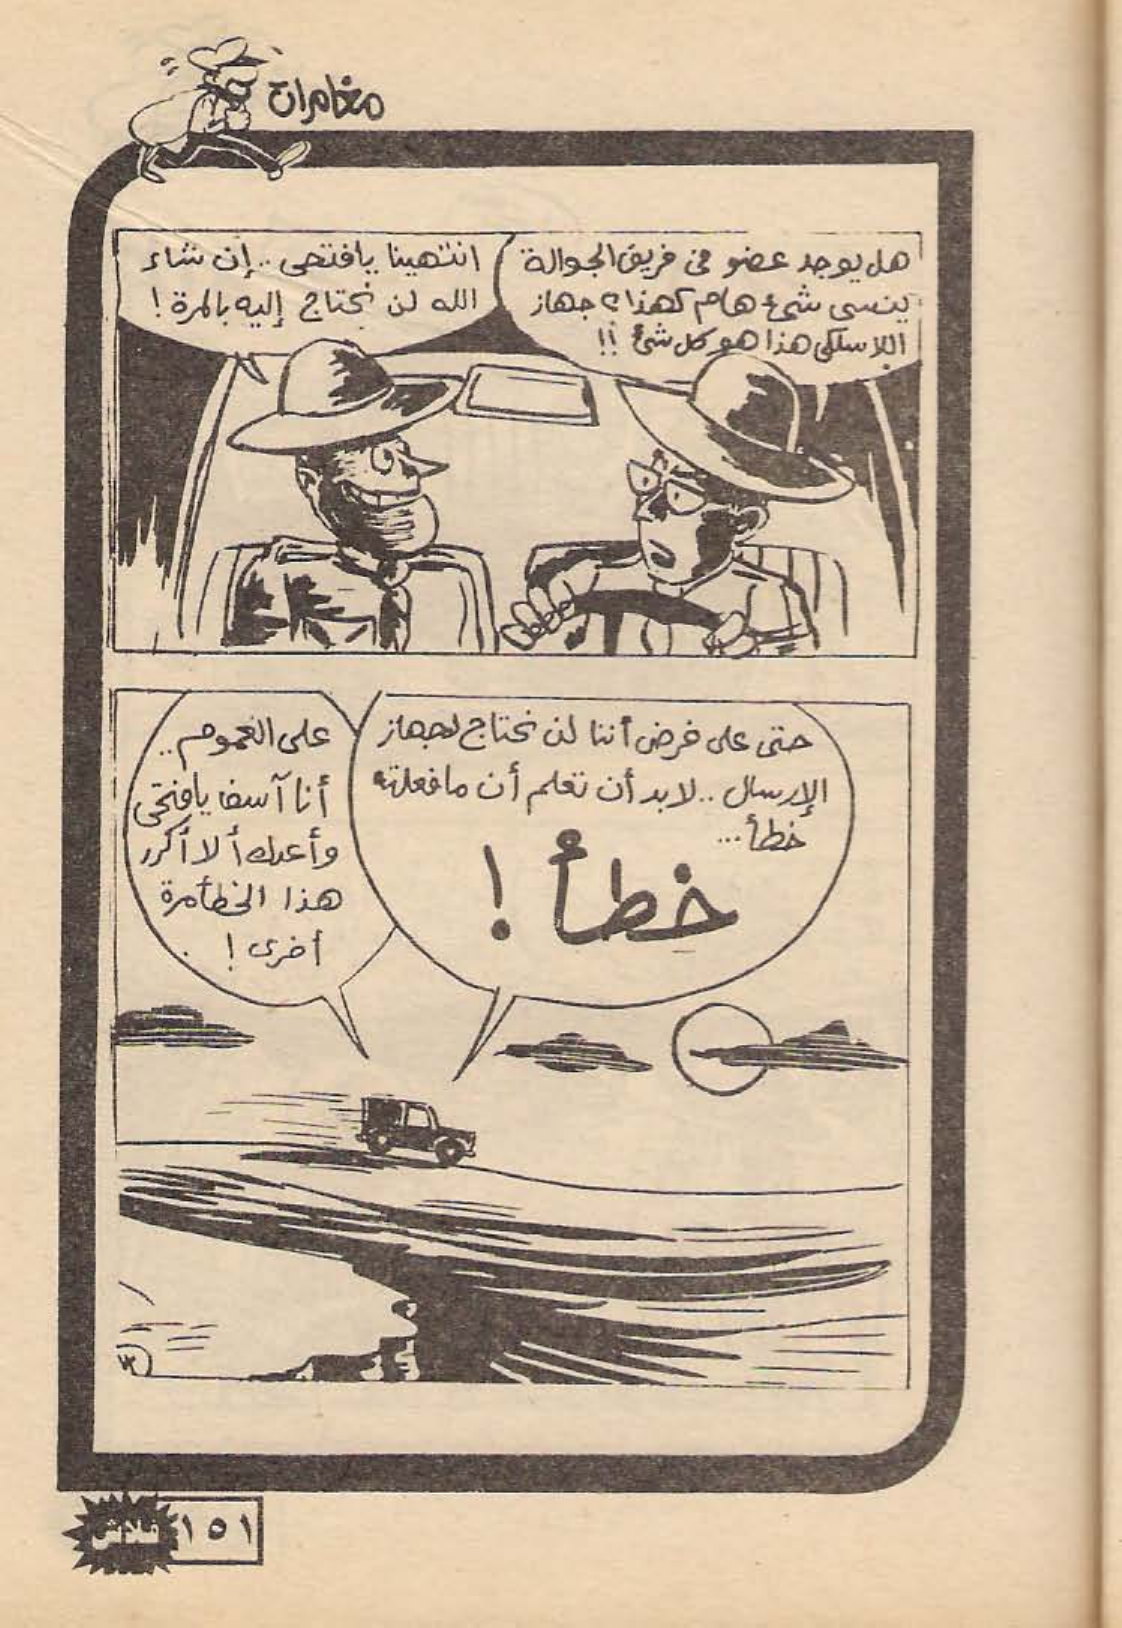 مغامرات
هل يوجد عضو في فريق الجوالة
ينسى شئ هام كهذا؟ جهاز
اللاسلكى هذا هو كل شئ !!
انتهينا يا فتحى .. إن شاء
الله لن نحتاج إليه بالمرة !
حتى على فرض أننا لن نحتاج لجهاز
الإرسال .. لابد أن تعلم أن ما فعلته
خطأ ...
خطأ !
على العموم ..
أنا آسف يا فتحى
وأعدك ألا أكرر
هذا الخطأ مرة
أخرى !
١٥١
فلاش